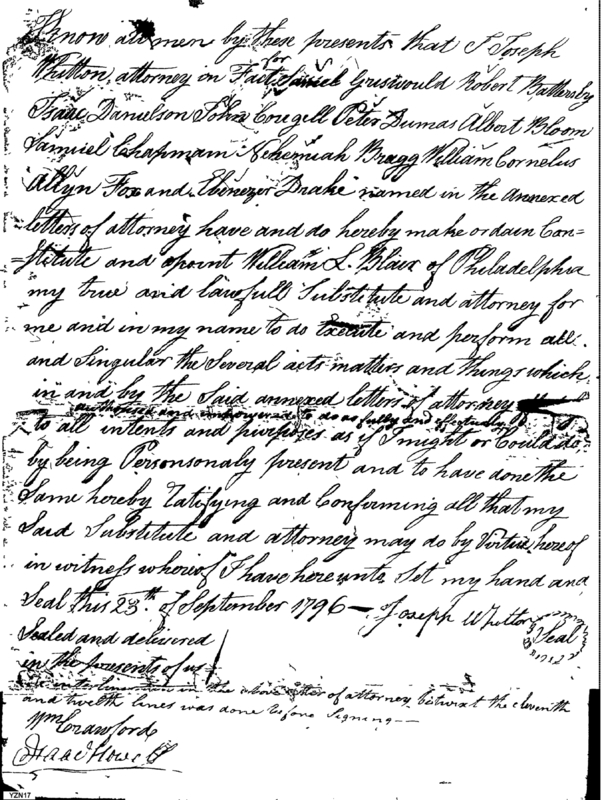 Know all men by these presents that I Joseph
Whitton attorney in Fact for Samiel Griswould Robert Battersby
Isaac Danielson John Coregill Peter Dumas Albert Bloom
Samiel Chapman Nehemiah Bragg William Cornelius
Allyn Fox and Ebenezer Drake named in the annexed
letters of attorney have and do hereby make ordain Con=
=stitute and apoint William L. Blair of Philadelphia
my true and lawfull Substitute and attorney for
me and in my name to do Execute and perform all
and Singular the Several acts matters and things which
in and by the Said annexed letters of attorney
authorised and impowered to do as fully and efectually
to all intents and purposes as if I might or Could do
by being Personsonaly present and to have done the
Same hereby Ratifying and Confirming all that my
Said Substitute and attorney may do by Virtue hereof
in witness whereof I have here unto Set my hand and
Seal this 23th of September 1796 — Joseph Whitton Seal
Sealed and delivered
in the presents of us
interlineation in the above letter of attorney betwixt the eleventh
and twelth lines was done before Signing —
Wm Crawford
Isaac Howell
YZN17